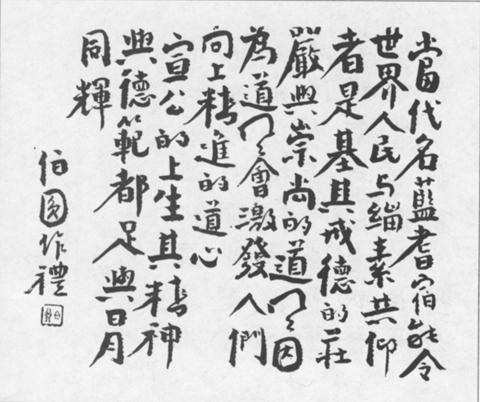 當代名藍耆宿能令
世界人民与緇素共仰
者是基其戒德的莊
嚴與崇尚的道風因
為道風會激發人們
向上精進的道心
宣公的上生其精神
與德範都足與日月
同輝
伯圓作禮